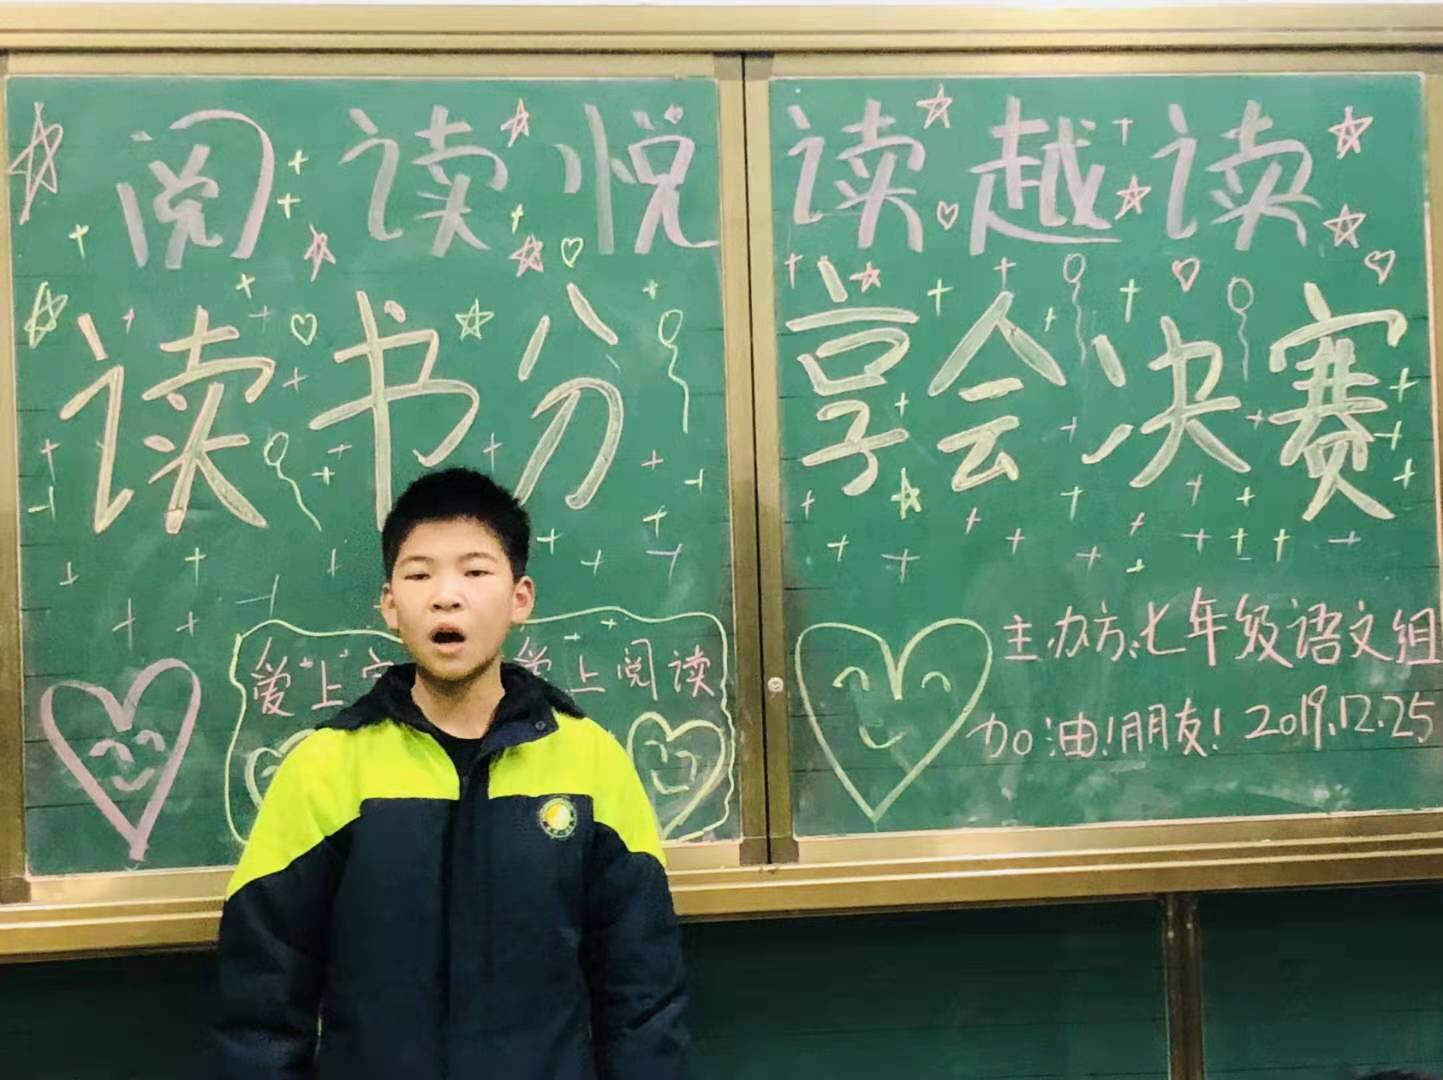 阅读悦读越读
读书分享会决赛
爱上 爱上阅读
主办方:七年级语文组
加油!朋友! 2019.12.25